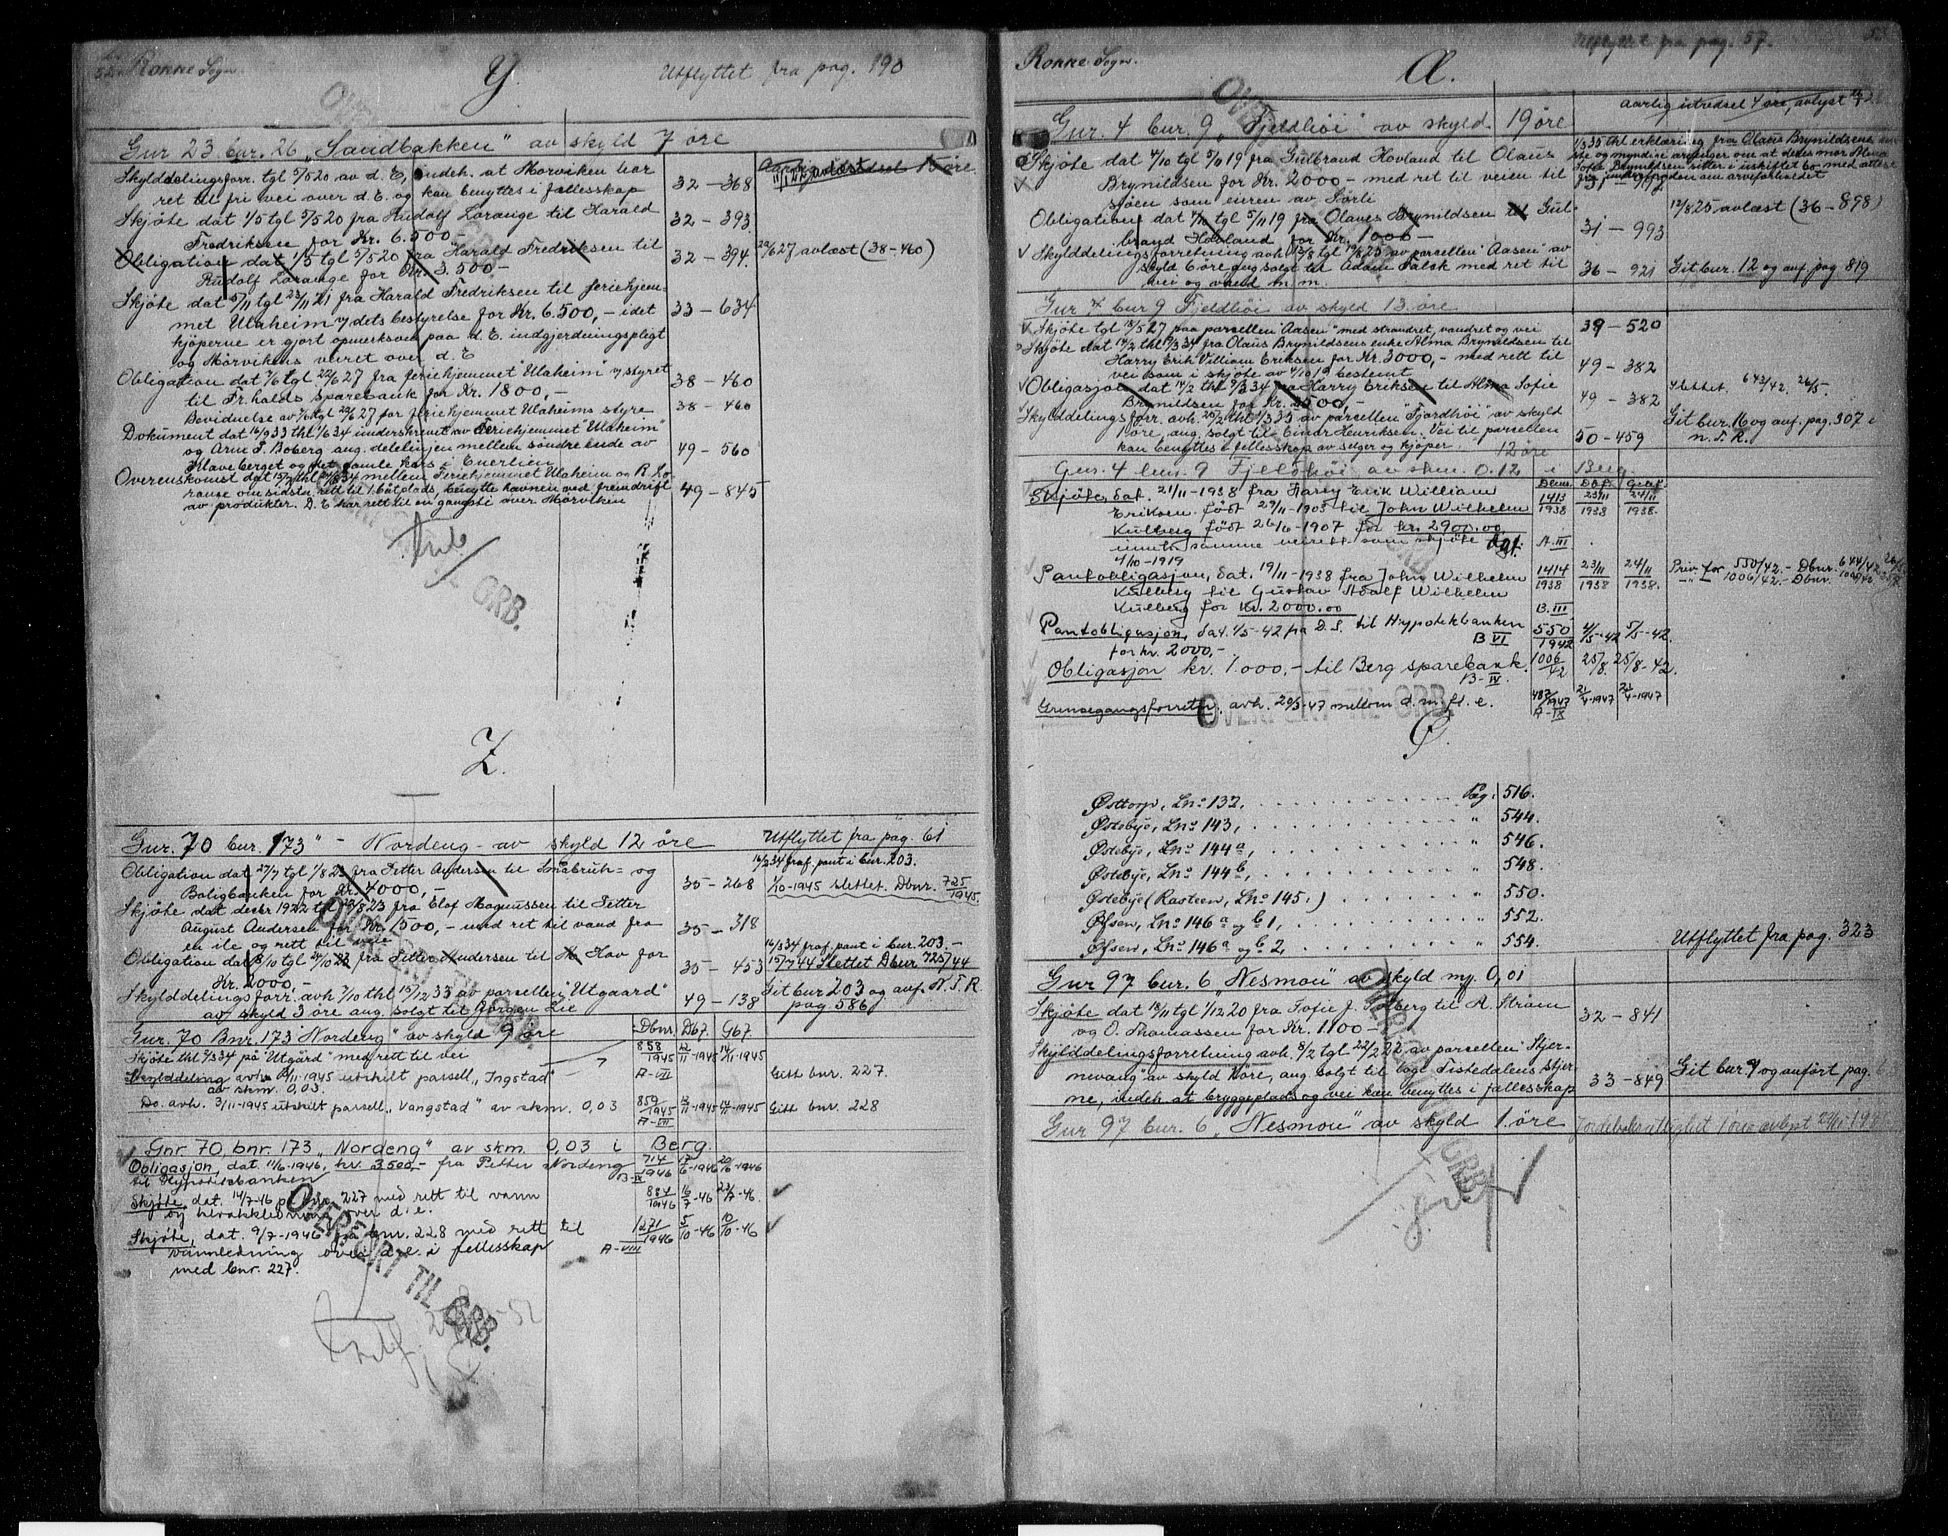 Rokke Sogn.
Y.
Utflyttet fra pag. 190
Gnr 23 bnr. 26 „Sandbakken" av skyld 7 øre
Skylddelingsforr. tgl 5/5 20 av d. E, indeh. at Mørviken har
ret til fri vei over d. E. og kan benyttes i fællesskap
32 – 368
Skjøte dat 1/5 tgl 5/5 20 fra Rudolf Lorange til Harald
Fredriksen for Kr. 6.500
32 – 393
Obligation dat 1/5 tgl 5/5 20 fra Harald Fredriksen til
Rudolf Lorange for Kr. 3.500 –
32 – 394.
20/6 27 avlæst (38–460)
Skjøte dat 5/11 tgl 23/11 21 fra Harald Fredriksen til feriehjem-
met Ulaheim v/ dets bestyrelse for Kr. 6.500, – idet
kjøperne er gjort opmerksom paa d. E. indgjerdningspligt
og Mørvikens veiret over d. E
33 – 634
Obligation dat 7/6 tgl 22/6 27 fra feriehjemmet Ulaheim v/ styret
til Fr.halds Sparebank for Kr. 1800, –
38 – 460
Bevidnelse av 7/6 tgl 20/6 27 for feriehjemmet Ulaheims styre
38 – 460
Dokument dat 16/9 33 thl 1/6 34 underskrevet av Feriehjemmet Ulaheim"
og Arne S. Boberg ang. delelinjen mellem søndre ende av
Klaveberget og det gamle kors i Enerlien
49 – 560
Overenskomst dat 15/7 thl 24/8 34 mellem Feriehjemmet Ulaheim og R. Lo-
range om sidstn. rett til 1 båtplads, benytte havnen ved fremdrift
av produkter. D. E har rett til en gangsti over Mørviken
49 – 845
Z.
Gnr. 70 bnr. 173 " – Nordeng – av skyld 12 øre
Utflyttet fra pag. 61
Obligation dat 27/7 tgl 1/8 23 fra Petter Andersen til Småbruk= og
Boligbanken for Kr. 4000, –
35 – 268
16/3 34 fraf. pant i bnr. 203.
1/10 –1945 slettet. Dbnr. 725/1945.
Skjøte dat decbr 1922 tgl 28/8 23 fra Elof Magnussen til Petter
August Andersen for Kr. 1500, – med ret til vand fra
en ile og rett til veie
35 – 318
Obligation dat 8/10 tgl 24/10 23 fra Petter Andersen til Hov for
Kr. 2000, –
35 – 453
16/3 34 fraf. pant i bnr. 203. –
15/7 44 Slettet Dbnr 725/44
Skylddelingsforr. avh 7/10 thl 15/12 33 av parsellen „Utgaard"
av skyld 3 øre ang. solgt til Jørgen Lie
49 – 138
Git bnr 203 og anf. N. F. R
pag 586
Gnr. 70 Bnr. 173 „Nordeng" av skyld 9 øre
Dbnr. Db7. Gb7
Skjøte thl 9/3 34 på "Utgård" med rett til vei
Skylddeling avh. 3/11–1945 utskilt parsell „Ingstad"
av skm. 0,03
858/1945
A–VII
Gitt bnr. 227.
Do. avh. 3/11–1945 utskilt parsell „Vangstad" av skm. 0,03
859/1945
A–VII
Gitt bnr. 228
Gnr. 70, bnr. 173 „Nordeng" av skm. 0,03 i Berg.
Obligasjon, dat. 11/6–1946, kr. 3500,– fra Petter Nordeng
til Hypotekbanken
714/1946
Skjøte, dat. 14/7–46 på bnr. 227 med rett til vann
og kloakkledning over d. e.
884/1946 16/7–46 22/7–46.
Skjøte, dat. 9/7–1946 på bnr. 228 med rett til
vannledning over d. e. i fellesskap
med bnr. 227.
1271/1946 5/10–46 10/10–46
A–VIII
OVERFØRT TIL GRB.
Rokke Sogn.
Æ.
Utflyttet fra pag. 57.
aarlig utredsel 4 øre, avlyst
Gnr. 4 bnr. 9 „Fjeldhøi" av skyld 19 øre
Skjøte dat 4/10 tgl 5/11 19 fra Gulbrand Hovland til Olaus
Brynildsen for Kr. 2000 – med ret til veien til
sjøen som eieren av Sørli
31 – 992
1/3 35 thl erklæring fra Olaus Brynildsens
Obligation dat 4/11 tgl 5/11 19 fra Olaves Brynildsen til Gul-
brand Hovland for Kr. 1000 –
31 – 993
12/8 25 avlæst (36–898)
Skylddelingsforretning avh. 13/8 tgl 19/8 25 av parsellen „Aasen" av
skyld 6 øre ang. solgt til Adam Falsk med ret til
vei og vand m. m.
36 – 921
Git bnr. 12 og anf pag 819
Gnr 4 bnr 9 Fjeldhøi av skyld 13 øre
Skjøte tgl 18/5 27 paa parsellen "Aasen" med strandret, vandret og vei
39 – 520
Skjøte dat 14/2 thl 9/3 34 fra Olaus Brynildsens enke Alma Brynildsen til
Harry Erik Villiam Eriksen for Kr. 3000, – med rett til
vei som i skjøte av 4/10 19 bestemt
49 – 382
Obligasjon dat 14/2 thl 9/3 34 fra Harry Eriksen til Alma Sofie
Brynildsen for Kr. 2500, –
49 – 382
slettet. 643/42. 26/5.
Skylddelingsforr. avh. 20/2 thl 1/3 35 av parsellen „Fjordhøi" av skyld
1 øre, ang. solgt til Einar Henriksen. Vei til parsellen
kan benyttes i fellesskap av selger og kjøper
50 – 459
Git bnr. 16 og anf. pag. 307 i
n. F. R.
12 øre
Gnr. 4 bnr. 9 Fjellhøi av skm. 0.12 i Berg.
Dbnr. Dbf. Grbf.
Skjøte, dat. 21/11–1938 fra Harry Erik William
Eriksen født 29/11–1905 til John Wilhelm
Kulberg født 26/6–1907 for kr. 2900.00
innbef. samme veirett som skjøte dat.
4/10–1919
1413/1938 23/11 1938 24/11 1938.
A–III
Pantobligasjon, dat. 19/11–1938 fra John Wilhelm
Kulberg til Gustav Adolf Wilhelm
Kulberg for Kr. 2000.00
1414/1938 23/11 1938 24/11 1938.
B. III
Priv. for 550/42. – Dbnr. 644/42
–"– 1006/42. – Dbnr.
Pantobligasjon, dat. 1/5–42 fra D. S. til Hypotekbanken
for kr. 2000,–
B VI
550/1942 4/5–42 5/5–42.
Obligasjon kr. 1.000,– til Berg sparebank.
B–IV.
1006/42 25/8. 25/8–42.
Grensegangsforretn. avh. 20/3–47 mellem d. m. fl. e.
487/1947 21/4–1947 21/4–1947
A–IX
OVERFØRT TIL GRB.
Ø.
Østtorp, Lnº 132, Pag. 516.
Østebye, Lnº 143, " 544.
Østebye, Lnº 144a, " 546.
Østebye, Lnº 144b, " 548.
Østebye (Rasteen, Lnº 145.) " 550.
Øfsen, Lnº 146a og b 1, " 552.
Øfsen, Lnº 146a og b 2, " 554.
Utflyttet fra pag. 323
Gnr 97 bnr. 6 „Nesmou" av skyld my. 0,01
Skjøte dat 13/11 tgl 1/12 20 fra Tofie J. Tolberg til A. Strøm
og O. Thomassen for Kr. 1100 –
32 – 841
Skylddelingsforretning avh. 8/2 tgl 22/2 22 av parsellen „Stjer-
nevang" av skyld 1 øre, ang. solgt til loge Tistedalens Stjer-
ne, indeh at bryggeplads og vei kan benyttes i fællesskap
33 – 849
Git bnr 9 og anført pag.
Gnr 97 bnr. 6 „Nesmou" av skyld 1 øre
OVERFØRT TIL GRB.